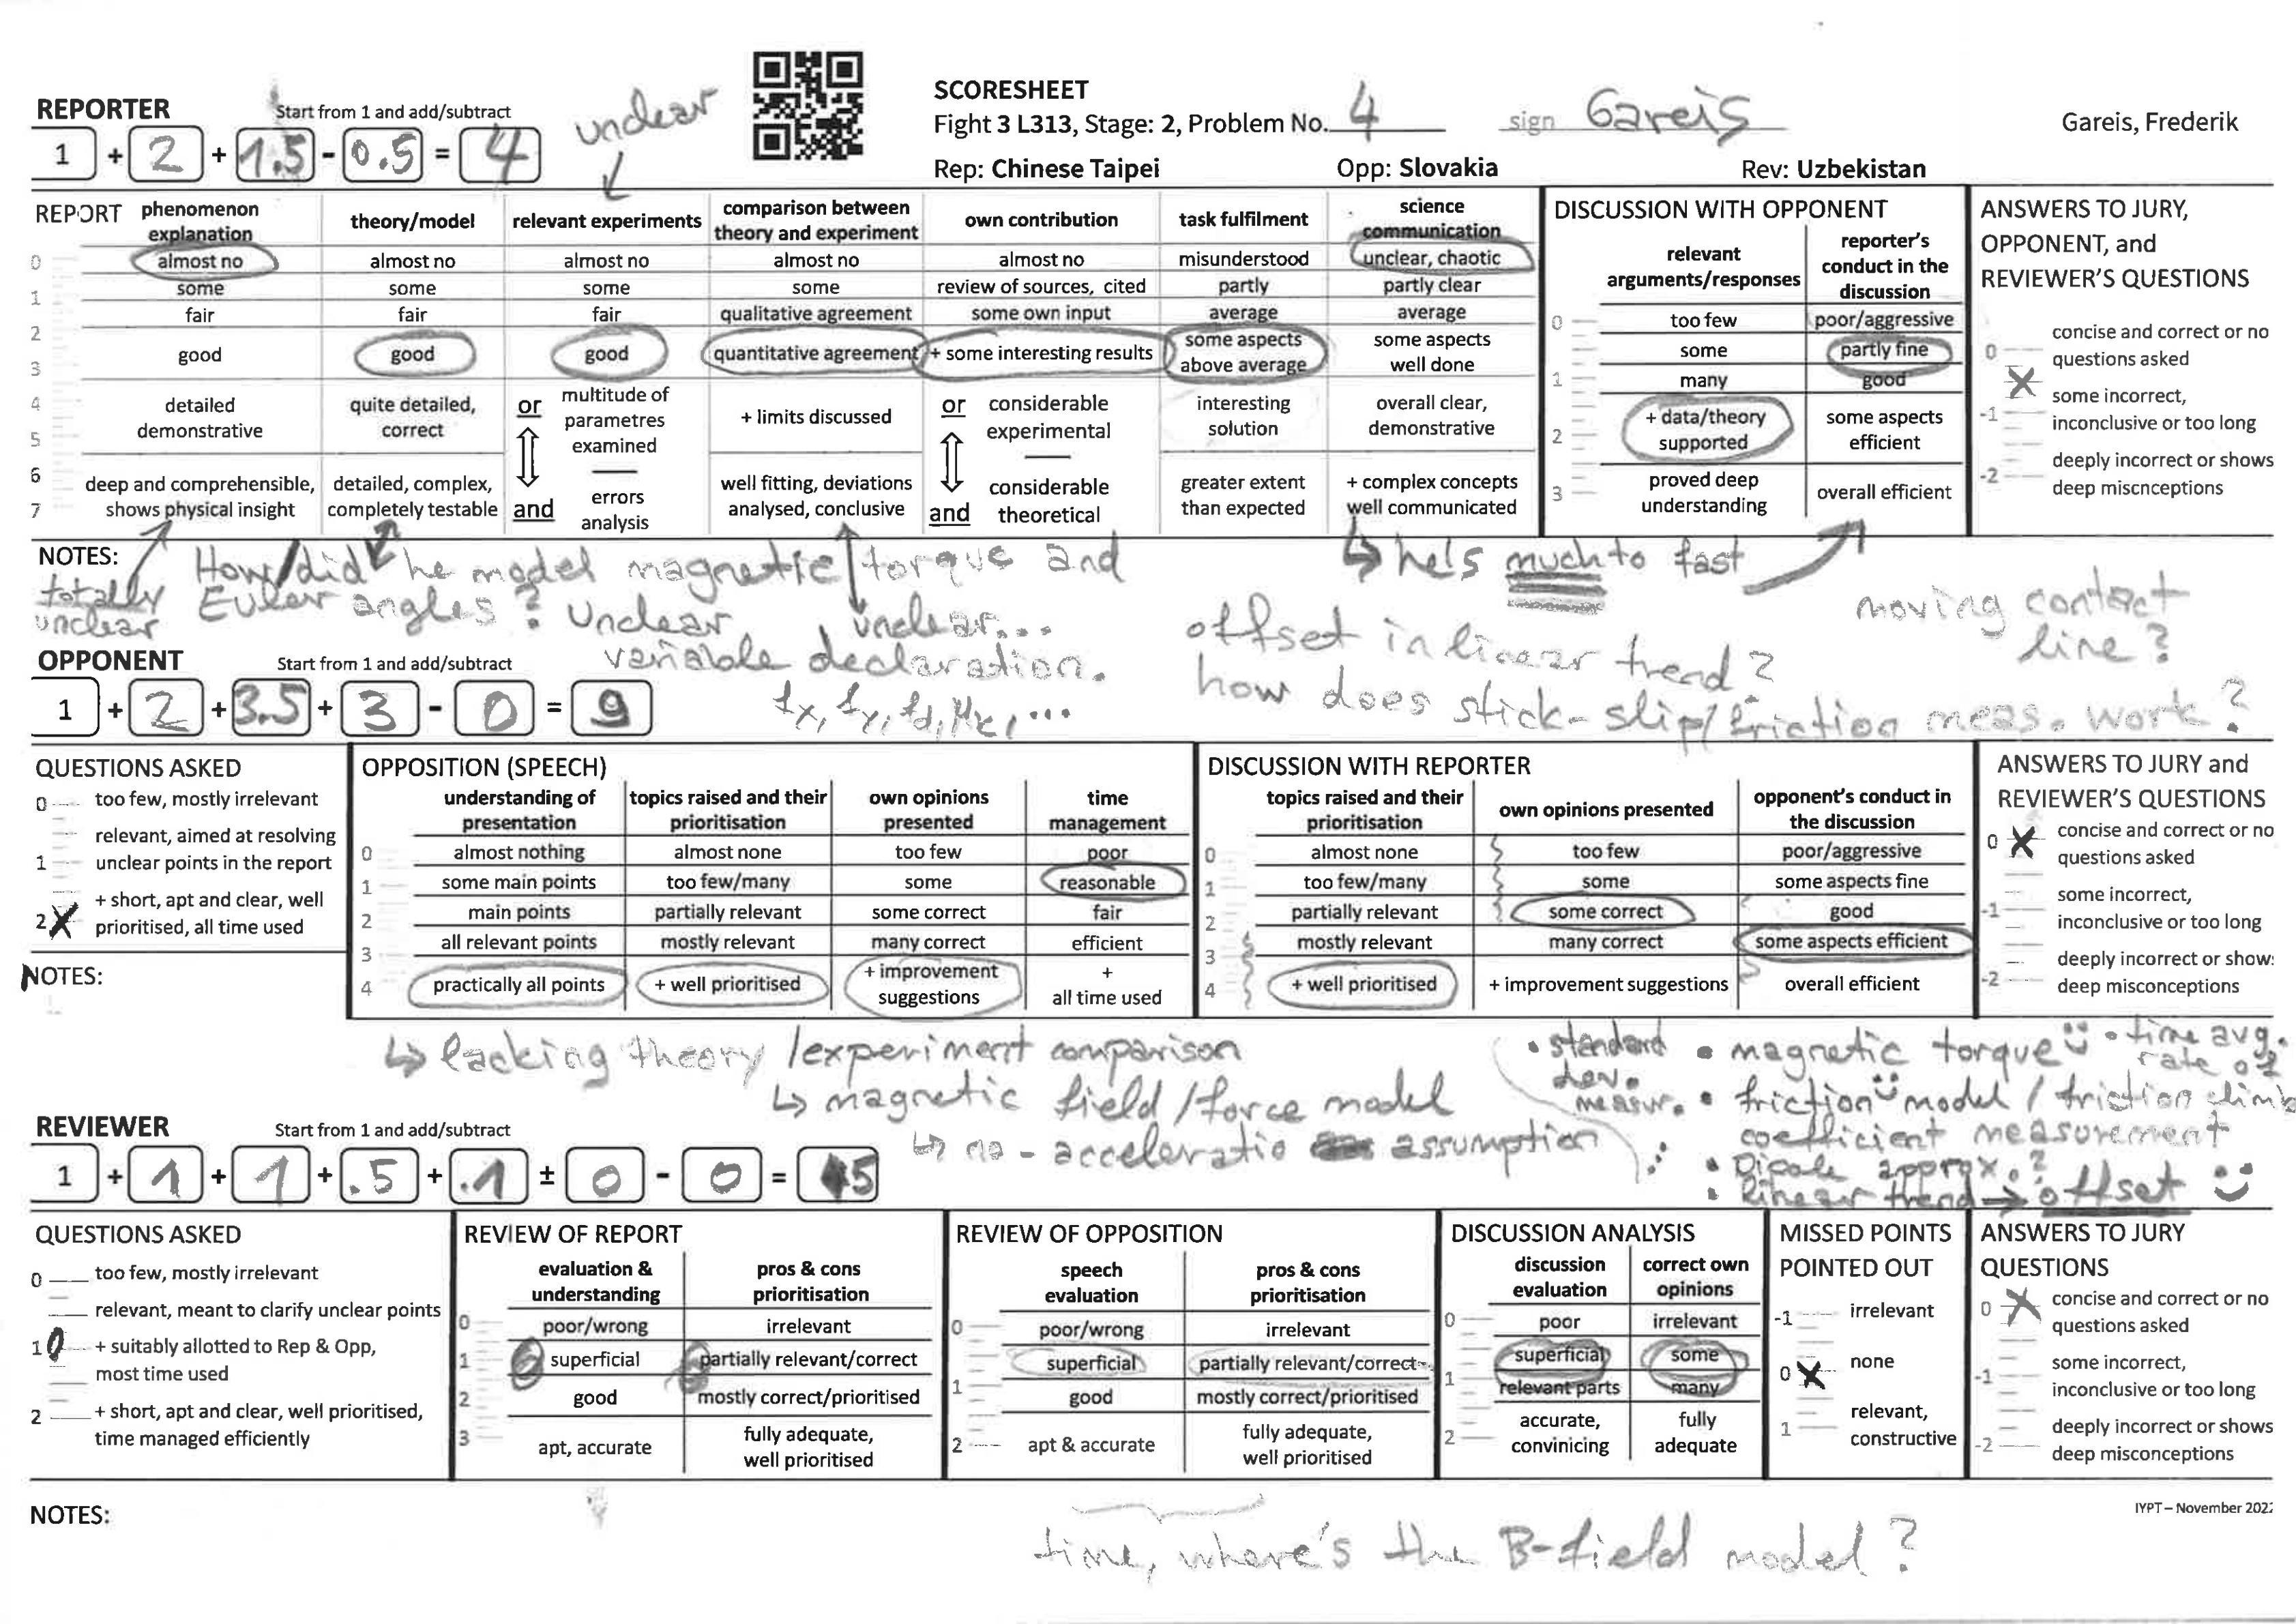 SCORESHEET
Fight 3 L313, Stage: 2, Problem No. 4
sign Gareis
Gareis, Frederik
Rep: Chinese Taipei
Opp: Slovakia
Rev: Uzbekistan
REPORTER
Start from 1 and add/subtract
1 + 2 + 1.5 - 0.5 = 4
unclear
REPORT
phenomenon explanation
theory/model
relevant experiments
comparison between theory and experiment
own contribution
task fulfilment
science communication
0
1
2
3
4
5
6
7
almost no
almost no
almost no
almost no
almost no
misunderstood
unclear, chaotic
some
some
some
some
review of sources, cited
partly
partly clear
fair
fair
fair
qualitative agreement
some own input
average
average
good
good
good
quantitative agreement
+ some interesting results
some aspects above average
some aspects well done
detailed demonstrative
quite detailed, correct
or
multitude of parametres examined
+ limits discussed
or
considerable experimental
interesting solution
overall clear, demonstrative
deep and comprehensible, shows physical insight
detailed, complex, completely testable
and
errors analysis
well fitting, deviations analysed, conclusive
and
considerable theoretical
greater extent than expected
+ complex concepts well communicated
DISCUSSION WITH OPPONENT
relevant arguments/responses
reporter's conduct in the discussion
0
1
2
3
too few
poor/aggressive
some
partly fine
many
good
+ data/theory supported
some aspects efficient
proved deep understanding
overall efficient
ANSWERS TO JURY,
OPPONENT, and
REVIEWER'S QUESTIONS
0
concise and correct or no
questions asked
-1
some incorrect,
inconclusive or too long
-2
deeply incorrect or shows
deep miscnceptions
NOTES:
totally
unclear
How did he model magnetic torque and
Euler angles? Unclear
variable declaration.
unclear...
he's much to fast
offset in linear trend?
how does stick-slip/friction meas. work?
moving contact
line?
OPPONENT
Start from 1 and add/subtract
1 + 2 + 3.5 + 3 - 0 = 9
QUESTIONS ASKED
0
too few, mostly irrelevant
1
relevant, aimed at resolving
unclear points in the report
2
+ short, apt and clear, well
prioritised, all time used
NOTES:
OPPOSITION (SPEECH)
understanding of presentation
topics raised and their prioritisation
own opinions presented
time management
0
1
2
3
4
almost nothing
almost none
too few
poor
some main points
too few/many
some
reasonable
main points
partially relevant
some correct
fair
all relevant points
mostly relevant
many correct
efficient
practically all points
+ well prioritised
+ improvement suggestions
+ all time used
DISCUSSION WITH REPORTER
topics raised and their prioritisation
own opinions presented
opponent's conduct in the discussion
0
1
2
3
4
almost none
too few
poor/aggressive
too few/many
some
some aspects fine
partially relevant
some correct
good
mostly relevant
many correct
some aspects efficient
+ well prioritised
+ improvement suggestions
overall efficient
ANSWERS TO JURY and
REVIEWER'S QUESTIONS
0
concise and correct or no
questions asked
-1
some incorrect,
inconclusive or too long
-2
deeply incorrect or show:
deep misconceptions
lacking theory/experiment comparison
magnetic field/force model
no-acceleratio assumption
• standard
dev.
measur.
• magnetic torque
• time avg.
rate of
• friction model / friction
coefficient measurement
• Dipole approx.?
• linear trend → offset
REVIEWER
Start from 1 and add/subtract
1 + 1 + 1 + .5 + .1 ± 0 - 0 = 5
QUESTIONS ASKED
0
too few, mostly irrelevant
relevant, meant to clarify unclear points
1
+ suitably allotted to Rep & Opp,
most time used
2
+ short, apt and clear, well prioritised,
time managed efficiently
REVIEW OF REPORT
evaluation & understanding
pros & cons prioritisation
0
1
2
3
poor/wrong
irrelevant
superficial
partially relevant/correct
good
mostly correct/prioritised
apt, accurate
fully adequate, well prioritised
REVIEW OF OPPOSITION
speech evaluation
pros & cons prioritisation
0
1
2
poor/wrong
irrelevant
superficial
partially relevant/correct
good
mostly correct/prioritised
apt & accurate
fully adequate, well prioritised
DISCUSSION ANALYSIS
discussion evaluation
correct own opinions
0
1
2
poor
irrelevant
superficial
some
relevant parts
many
accurate, convinicing
fully adequate
MISSED POINTS
POINTED OUT
-1
irrelevant
0
none
1
relevant,
constructive
ANSWERS TO JURY
QUESTIONS
0
concise and correct or no
questions asked
-1
some incorrect,
inconclusive or too long
-2
deeply incorrect or shows
deep misconceptions
NOTES:
time, where's the B-field model?
IYPT – November 202